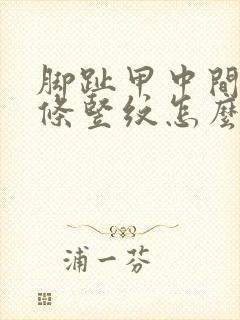 脚趾甲中間
條豎紋怎麼
浦一芬